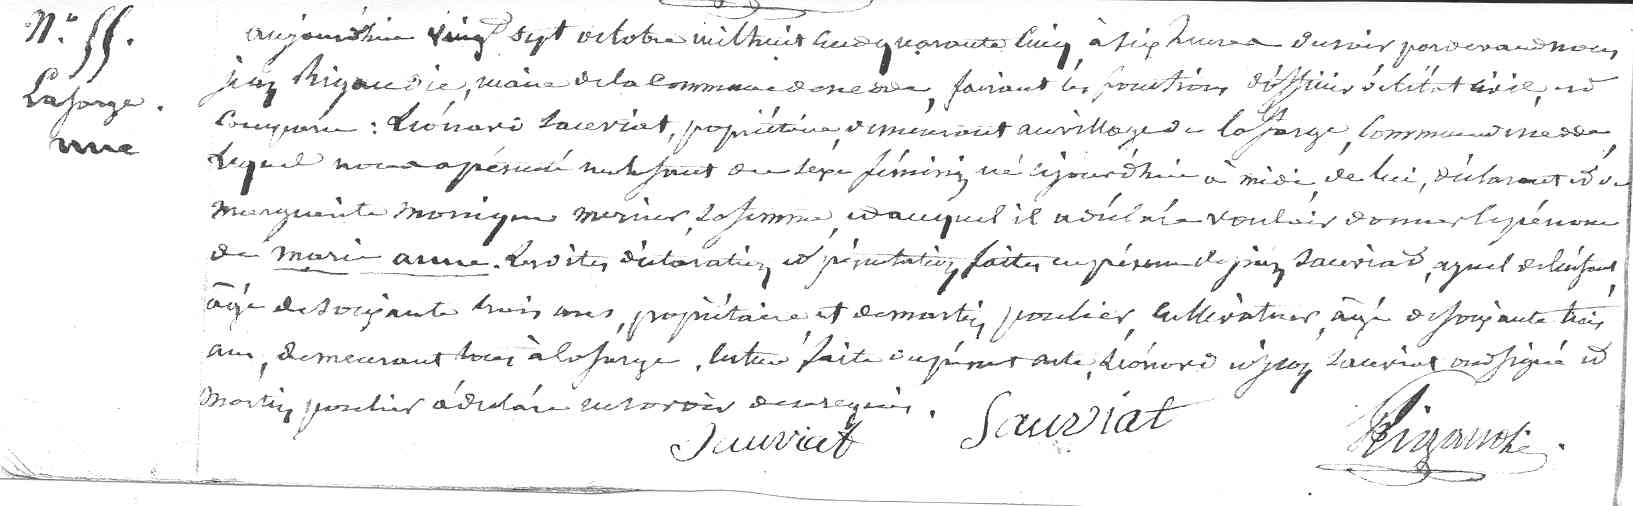 N.° 55.
Lafarge.
aujourd'hui vingt sept octobre mil huit cent quarante cinq à six heures du soir par devant nous
jean Rigaudie, maire de la commune de nedde, faisant les fonctions d'officier de l'état civil, est
comparu : Léonard Sauviat, propriétaire, demeurant au village de Lafarge, commune de nedde,
lequel nous a présenté un enfant du sexe féminin, né aujourd'hui à midi, de lui, déclarant et de
marguerite monique mercier, sa femme, et auquel il a déclaré vouloir donner le prénom
de marie anne. Lesdites déclaration et présentation faites en présence de jean Sauviat, ayeul de l'enfant,
âgé de soixante trois ans, propriétaire, et de martin poulier, cultivateur, âgé de soixante trois
ans, demeurant tous à lafarge, lecture faite du présent acte, Léonard et jean Sauviat ont signé et
Martin poulier a déclaré ne savoir de ce requis.
Sauviat Sauviat Rigaudie